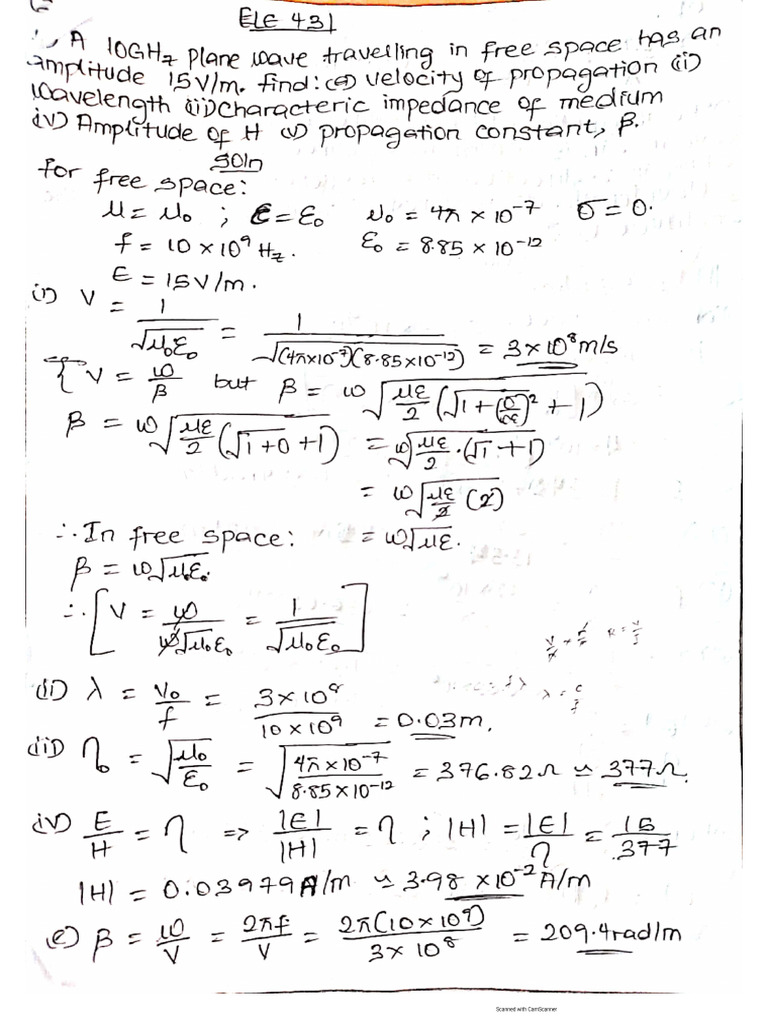 ELE 431
1, A 10GHz plane wave travelling in free space has an
amplitude 15V/m. find: (i) velocity of propagation (ii)
wavelength (iii) Characteric impedance of medium
(iv) Amplitude of H (v) propagation constant, β.
soln
for free space:
μ = μ₀ ; ε = ε₀ μ₀ = 4π × 10⁻⁷ σ = 0.
f = 10 × 10⁹ Hz. ε₀ = 8.85 × 10⁻¹²
E = 15V/m.
(i) V = 1/√(μ₀ε₀) = 1/√((4π×10⁻⁷)(8.85×10⁻¹²)) = 3 × 10⁸ m/s
[V = ω/β but β = ω√(με/2 (√(1+(σ/ωε)²) + 1))
β = ω√(με/2 (√(1+0) + 1)) = ω√(με/2 · (√1 + 1))
= ω√(με/2 (2))
∴ In free space: = ω√με.
β = ω√μ₀ε₀.
∴ [V = ω/(ω√μ₀ε₀) = 1/√μ₀ε₀]
(ii) λ = V₀/f = 3 × 10⁸/10 × 10⁹ = 0.03m.
(iii) η₀ = √(μ₀/ε₀) = √(4π × 10⁻⁷/8.85 × 10⁻¹²) = 376.82Ω ≃ 377Ω.
(iv) E/H = η => |E|/|H| = η ; |H| = |E|/η = 15/377
|H| = 0.03979A/m ≃ 3.98 × 10⁻² A/m
(e) β = ω/V = 2πf/V = 2π(10 × 10⁹)/3 × 10⁸ = 209.4rad/m
Scanned with CamScanner